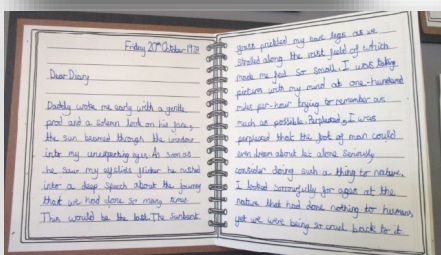 Friday 20th October 1972
Dear Diary
Daddy woke me early with a gentle
prod and a solemn look on his face,
the sun beamed through the window
into my unexpecting eyes. As soon as
he saw my eyelids flicker he rushed
into a deep speech about the journey
that we had done so many times
This would be the last. The sunbeat
grass prickled my bare legs as we
strolled along the vast field of which
made me feel so small. I was taking
pictures with my mind at one-hundred
miles per-hour trying to remember as
much as possible. Perplexed, I was
perplexed that the foot of man could
even dream about let alone seriously
consider doing such a thing to nature,
I looked sorrowfully for ages at the
nature that had done nothing to humans
yet we were being so cruel back to it